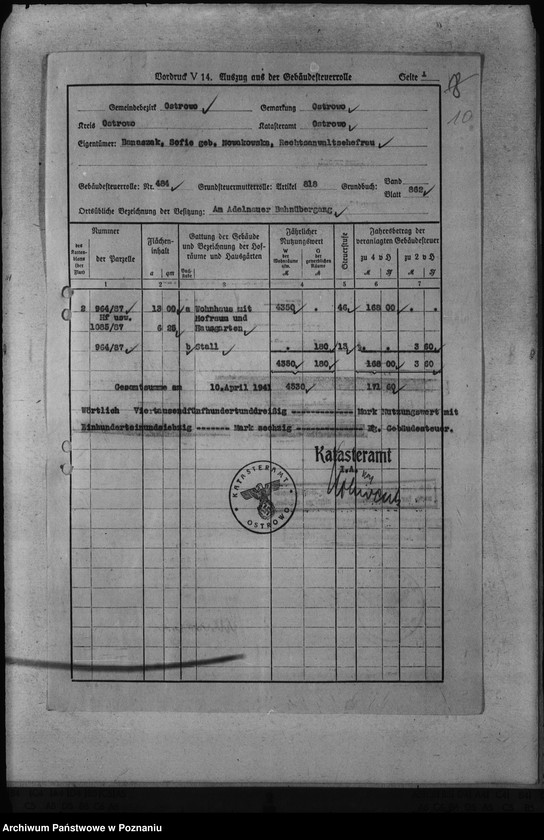 Vordruck V 14. Auszug aus der Gebäudesteuerrolle Seite 1
8
10.
Gemeindebezirk Ostrowo Gemarkung Ostrowo
Kreis Ostrowo Katasteramt Ostrowo
Eigentümer: Banaszak, Sofie geb. Nowakowska, Rechtsanwaltsehefrau
Gebäudesteuerrolle: Nr. 484 Grundsteuermutterrolle: Artikel 818 Grundbuch: Band
Blatt 862
Ortsübliche Bezeichnung der Besitzung: Am Adelnauer Bahnübergang
Nummer Flächeninhalt Gattung der Gebäude und Bezeichnung der Hofräume und Hausgärten Jährlicher Nutzungswert Steuerstufe Jahresbetrag der veranlagten Gebäudesteuer
der Parzelle a qm zu 4 v H zu 2 v H
1 2 3 4 5 6 7
2 964/87 13 00 a Wohnhaus mit 4350 . 46 168 00 . .
Hf usw. Hofraum und
1085/87 6 25 Hausgarten
964/87 b Stall . 180 13 . . 3 60
4350 180 168 00 3 60
Gesamtsumme am 10.April 1941 4530 171 60
Wörtlich Viertausendfünfhundertunddreißig Mark Nutzungswert mit
Einhunderteinundsiebzig Mark sechzig Pf. Gebäudesteuer.
Katasteramt
I.A.
KATASTERAMT
OSTROWO
Archiwum Państwowe w Poznaniu